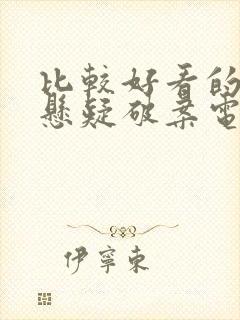 比較好看的
懸疑破案電
伊寧東